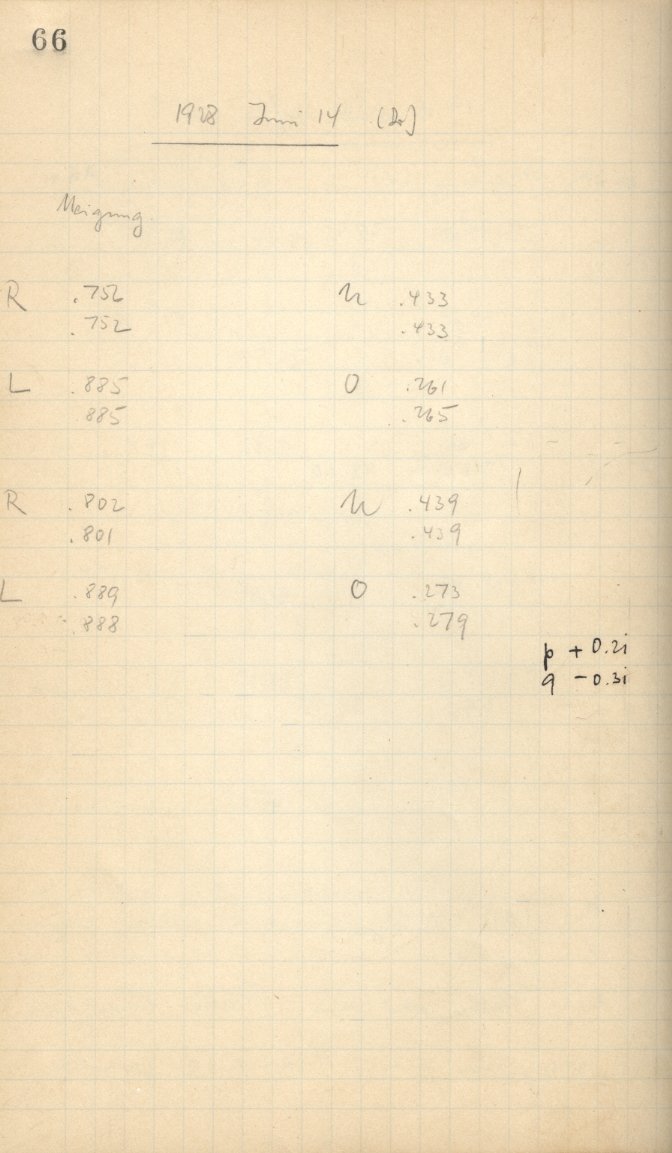 66
1928 Juni 14 (Dr)
Neigung
R .752 U .433
.752 .433
L .885 O .261
885 .265
R .802 U .439
.801 .439
L .889 O .273
.888 .279
p + 0.21
q - 0.31